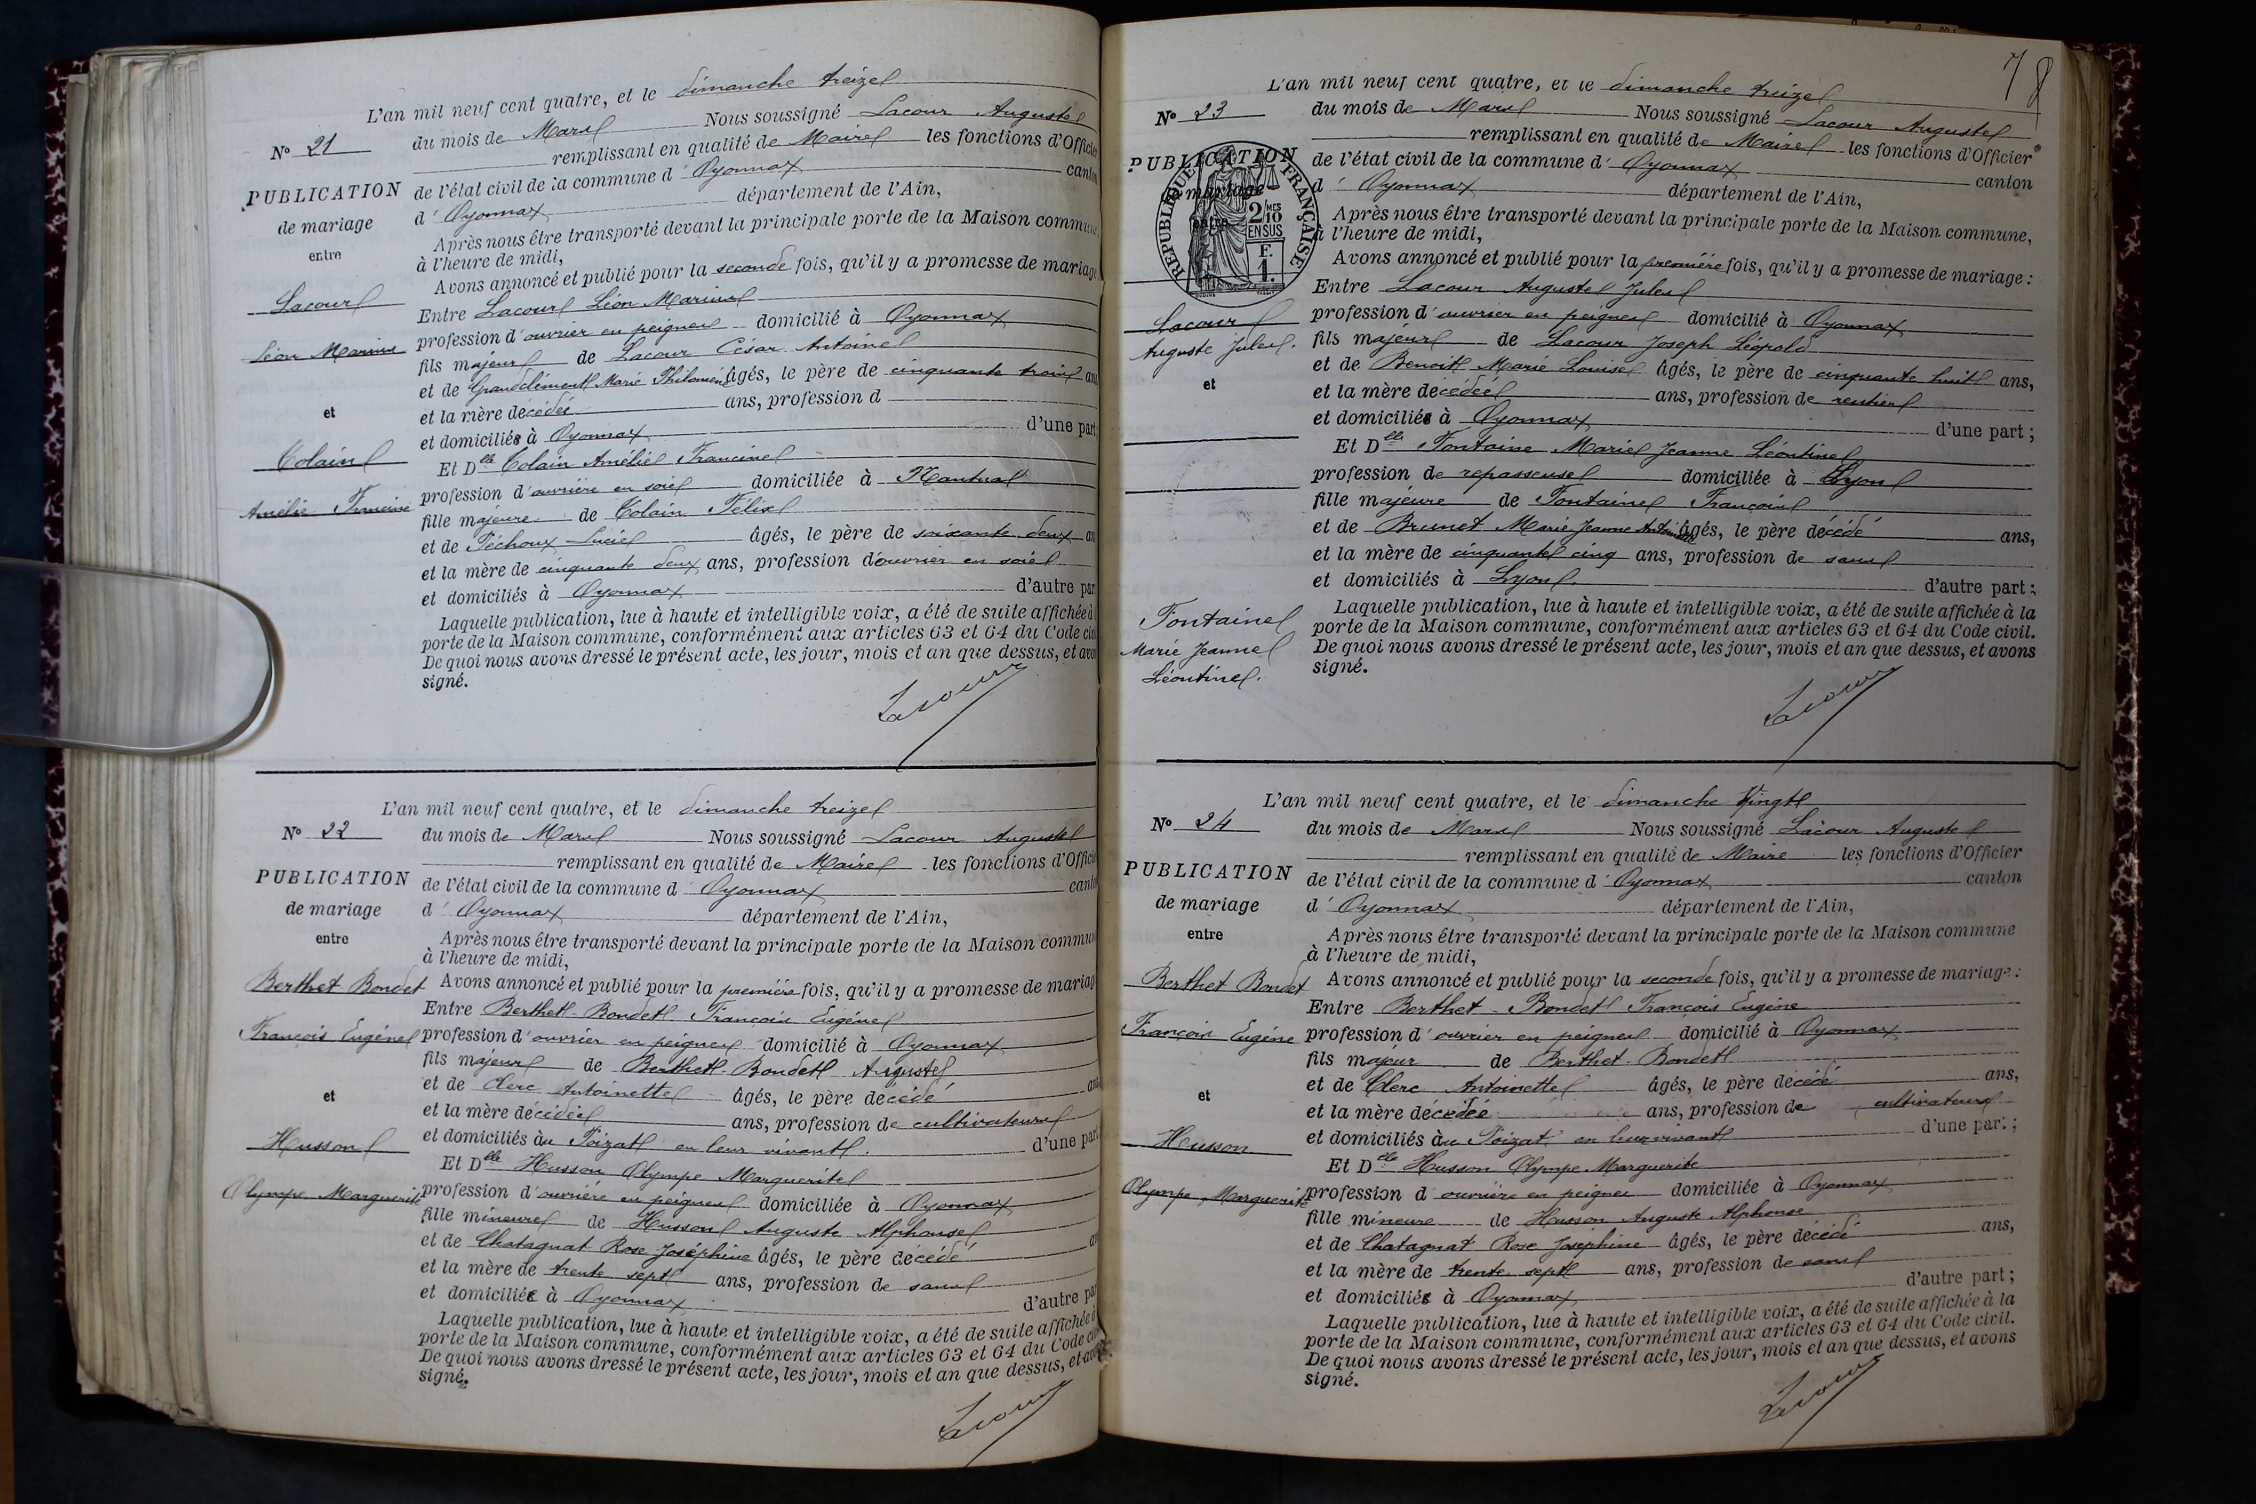 L'an mil neuf cent quatre, et le dimanche treize
No 21
du mois de Mars Nous soussigné Lacour Auguste
remplissant en qualité de Maire les fonctions d'Officier
PUBLICATION
de l'état civil de la commune d' Oyonnax canton
de mariage
d' Oyonnax département de l'Ain,
entre
Après nous être transporté devant la principale porte de la Maison commune,
à l'heure de midi,
Avons annoncé et publié pour la seconde fois, qu'il y a promesse de mariage
Lacour
Entre Lacour Léon Marius
Léon Marius
profession d'ouvrier en peignes domicilié à Oyonnax
fils majeur de Lacour César Antoine
et de Grandclément Marie Philomène âgés, le père de cinquante trois ans
et
et la mère décédée ans, profession d
et domiciliés à Oyonnax d'une part
Colain
Et Dlle Colain Amélie Francine
Amélie Francine
profession d'ouvrière en soie domiciliée à Nantua
fille majeure de Colain Félix
et de Péchoux Lucie âgés, le père de soixante deux an
et la mère de cinquante deux ans, profession d'ouvrier en soie
et domiciliés à Oyonnax d'autre par
Laquelle publication, lue à haute et intelligible voix, a été de suite affichée à
porte de la Maison commune, conformément aux articles 63 et 64 du Code civ
De quoi nous avons dressé le présent acte, les jour, mois et an que dessus, et avon
signé.
Lacour
L'an mil neuf cent quatre, et le dimanche treize
No 22
du mois de Mars Nous soussigné Lacour Auguste
remplissant en qualité de Maire les fonctions d'Officie
PUBLICATION
de l'état civil de la commune d' Oyonnax canton
de mariage
d' Oyonnax département de l'Ain,
entre
Après nous être transporté devant la principale porte de la Maison commun
à l'heure de midi,
Berthet Bondet
Avons annoncé et publié pour la première fois, qu'il y a promesse de mariag
Entre Berthet-Bondet François Eugène
François Eugène
profession d'ouvrier en peignes domicilié à Oyonnax
fils majeur de Berthet-Bondet Auguste
et de Clerc Antoinette âgés, le père décédé ans
et
et la mère décédée ans, profession de cultivateurs
et domiciliés au Poizat en leur vivant. d'une part
Husson
Et Dlle Husson Olympe Marguerite
Olympe Marguerite
profession d'ouvrière en peignes domiciliée à Oyonnax
fille mineure de Husson Auguste Alphonse
et de Chatagnat Rose Joséphine âgés, le père décédé an
et la mère de trente sept ans, profession de sans
et domiciliée à Oyonnax d'autre pa
Laquelle publication, lue à haute et intelligible voix, a été de suite affichée à
porte de la Maison commune, conformément aux articles 63 et 64 du Code civ
De quoi nous avons dressé le présent acte, les jour, mois et an que dessus, et avo
signé.
Lacour
78
L'an mil neuf cent quatre, et le dimanche treize
No 23
du mois de Mars Nous soussigné Lacour Auguste
remplissant en qualité de Maire les fonctions d'Officier
PUBLICATION
de l'état civil de la commune d' Oyonnax canton
de mariage
d' Oyonnax département de l'Ain,
entre
RÉPUBLIQUE FRANÇAISE
2/10 MES
EN SUS
F.
1.
Après nous être transporté devant la principale porte de la Maison commune,
à l'heure de midi,
Avons annoncé et publié pour la première fois, qu'il y a promesse de mariage :
Entre Lacour Auguste Jules
Lacour
profession d'ouvrier en peignes domicilié à Oyonnax
Auguste Jules.
fils majeur de Lacour Joseph Léopold
et de Benoit Marie Louise âgés, le père de cinquante huit ans,
et
et la mère décédée ans, profession de rentier
et domiciliés à Oyonnax d'une part ;
Et Dlle Fontaine Marie Jeanne Léontine
profession de repasseuse domiciliée à Lyon
fille majeure de Fontaine François
et de Brunet Marie Jeanne Antoinette âgés, le père décédé ans,
et la mère de cinquante cinq ans, profession de sans
et domiciliés à Lyon d'autre part ;
Fontaine
Marie Jeanne
Léontine.
Laquelle publication, lue à haute et intelligible voix, a été de suite affichée à la
porte de la Maison commune, conformément aux articles 63 et 64 du Code civil.
De quoi nous avons dressé le présent acte, les jour, mois et an que dessus, et avons
signé.
Lacour
L'an mil neuf cent quatre, et le dimanche Vingt
No 24
du mois de Mars Nous soussigné Lacour Auguste
remplissant en qualité de Maire les fonctions d'Officier
PUBLICATION
de l'état civil de la commune d' Oyonnax canton
de mariage
d' Oyonnax département de l'Ain,
entre
Après nous être transporté devant la principale porte de la Maison commune
à l'heure de midi,
Berthet Bondet
Avons annoncé et publié pour la seconde fois, qu'il y a promesse de mariage :
Entre Berthet-Bondet François Eugène
François Eugène
profession d'ouvrier en peignes domicilié à Oyonnax
fils majeur de Berthet-Bondet
et de Clerc Antoinette âgés, le père décédé ans,
et
et la mère décédée ans, profession de cultivateurs
et domiciliés au Poizat en leur vivant d'une part ;
Husson
Et Dlle Husson Olympe Marguerite
Olympe Marguerite
profession d'ouvrière en peignes domiciliée à Oyonnax
fille mineure de Husson Auguste Alphonse
et de Chatagnat Rose Josephine âgés, le père décédé ans,
et la mère de trente sept ans, profession de sans
et domiciliée à Oyonnax d'autre part ;
Laquelle publication, lue à haute et intelligible voix, a été de suite affichée à la
porte de la Maison commune, conformément aux articles 63 et 64 du Code civil.
De quoi nous avons dressé le présent acte, les jour, mois et an que dessus, et avons
signé.
Lacour